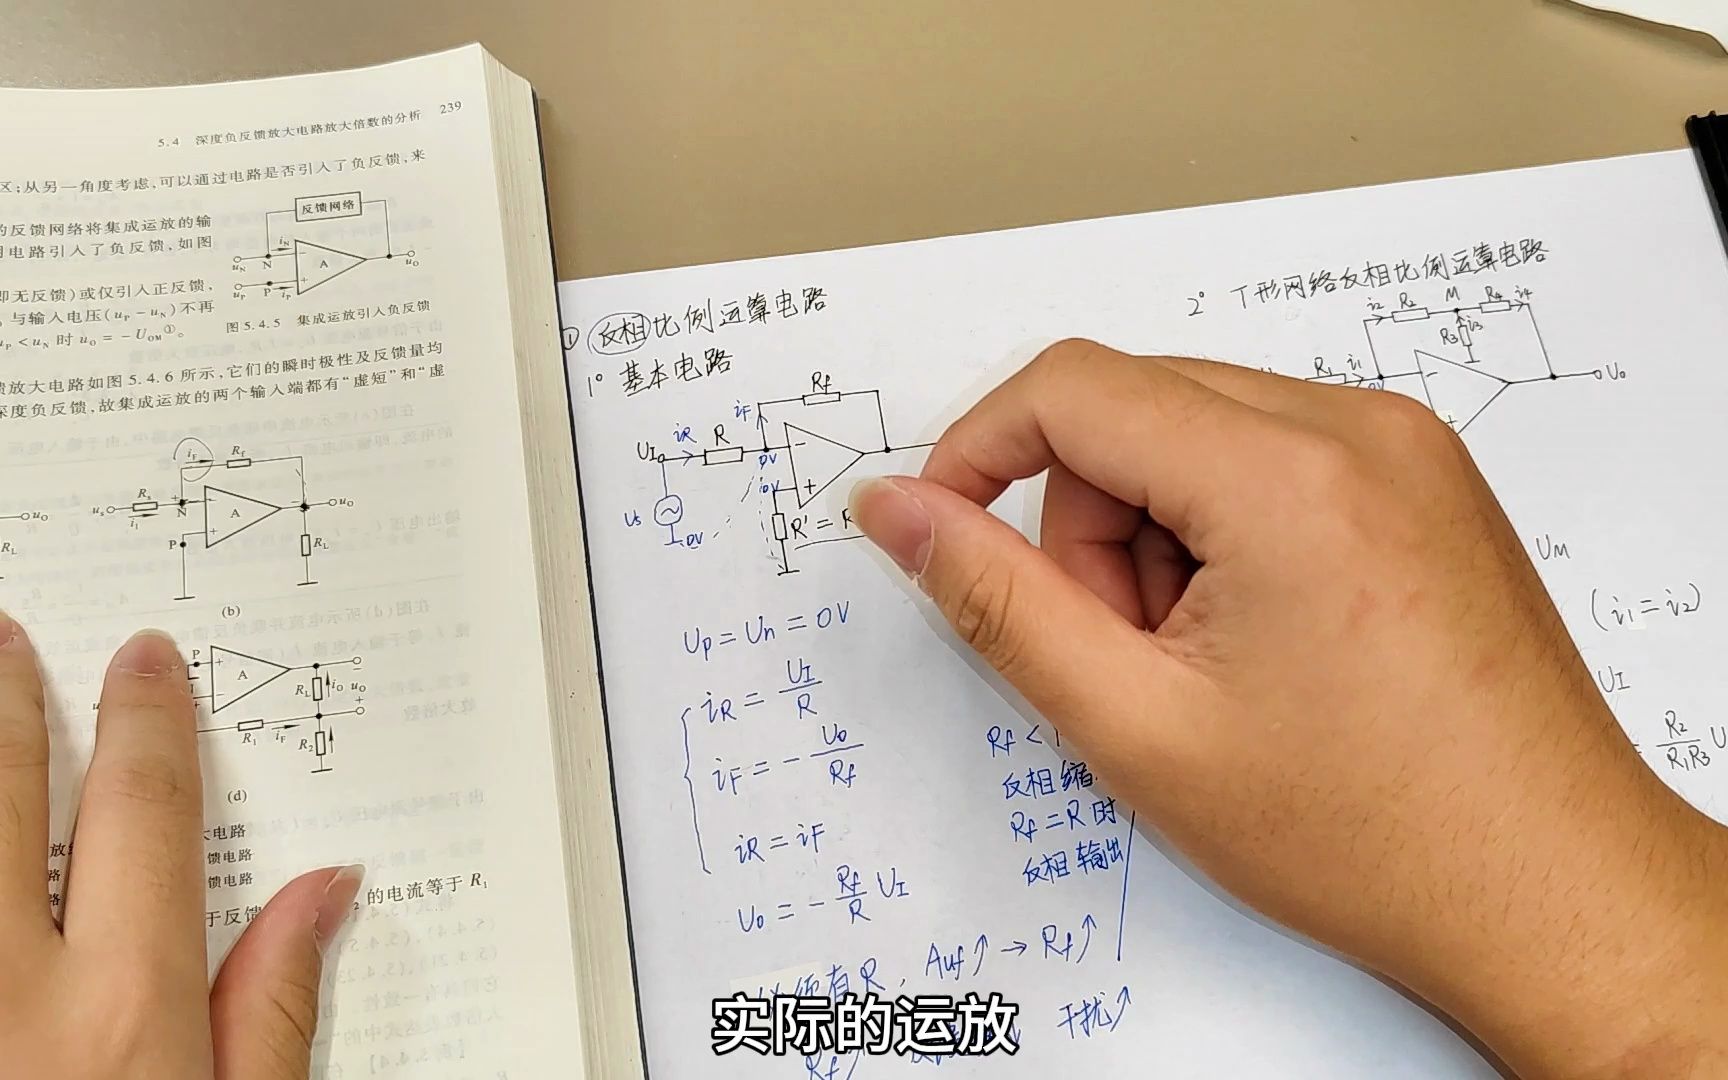 5.4 深度负反馈放大电路放大倍数的分析 239
区;从另一角度考虑,可以通过电路是否引入了负反馈,来
的反馈网络将集成运放的输
明电路引入了负反馈,如图
即无反馈)或仅引入正反馈,
与输入电压(uP-uN)不再
uP<uN时uO=-UOM①。
反馈网络
uN N iN A uO
uP P iP
图5.4.5 集成运放引入负反馈
馈放大电路如图5.4.6所示,它们的瞬时极性及反馈量均
深度负反馈,故集成运放的两个输入端都有“虚短”和“虚
iF Rf
us Rs i1 N A uO
uO
RL
P RL
(b)
P A
RL iO uO
R1 iF R2
(d)
大电路
馈电路
馈电路
于反馈
的电流等于R1
① 反相比例运算电路
1° 基本电路
Rf
iF
UI iR R
0V
0V
Us
0V
R'=R
Up=Un=0V
iR=UI/R
iF=-Uo/Rf
iR=iF
Uo=-Rf/R UI
Rf<
反相缩
Rf=R时
反相输出
须有R, Auf↑→Rf↑
Rf↑
干扰↑
2° T形网络反相比例运算电路
i2 R2 M R4 i4
R3 i3
R1 i1
0V
Uo
UM
(i1=i2)
UI
R2/R1R3 U
实际的运放